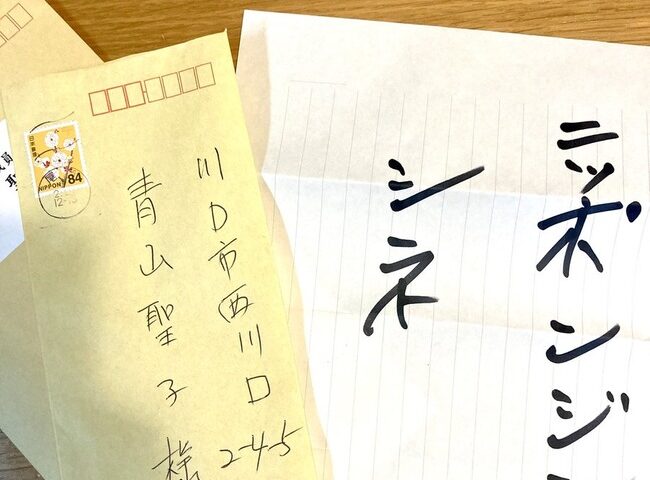 川口市西川口2-4-5
青山聖子様
日本郵便
NIPPON 84
ニッポンジ
シネ